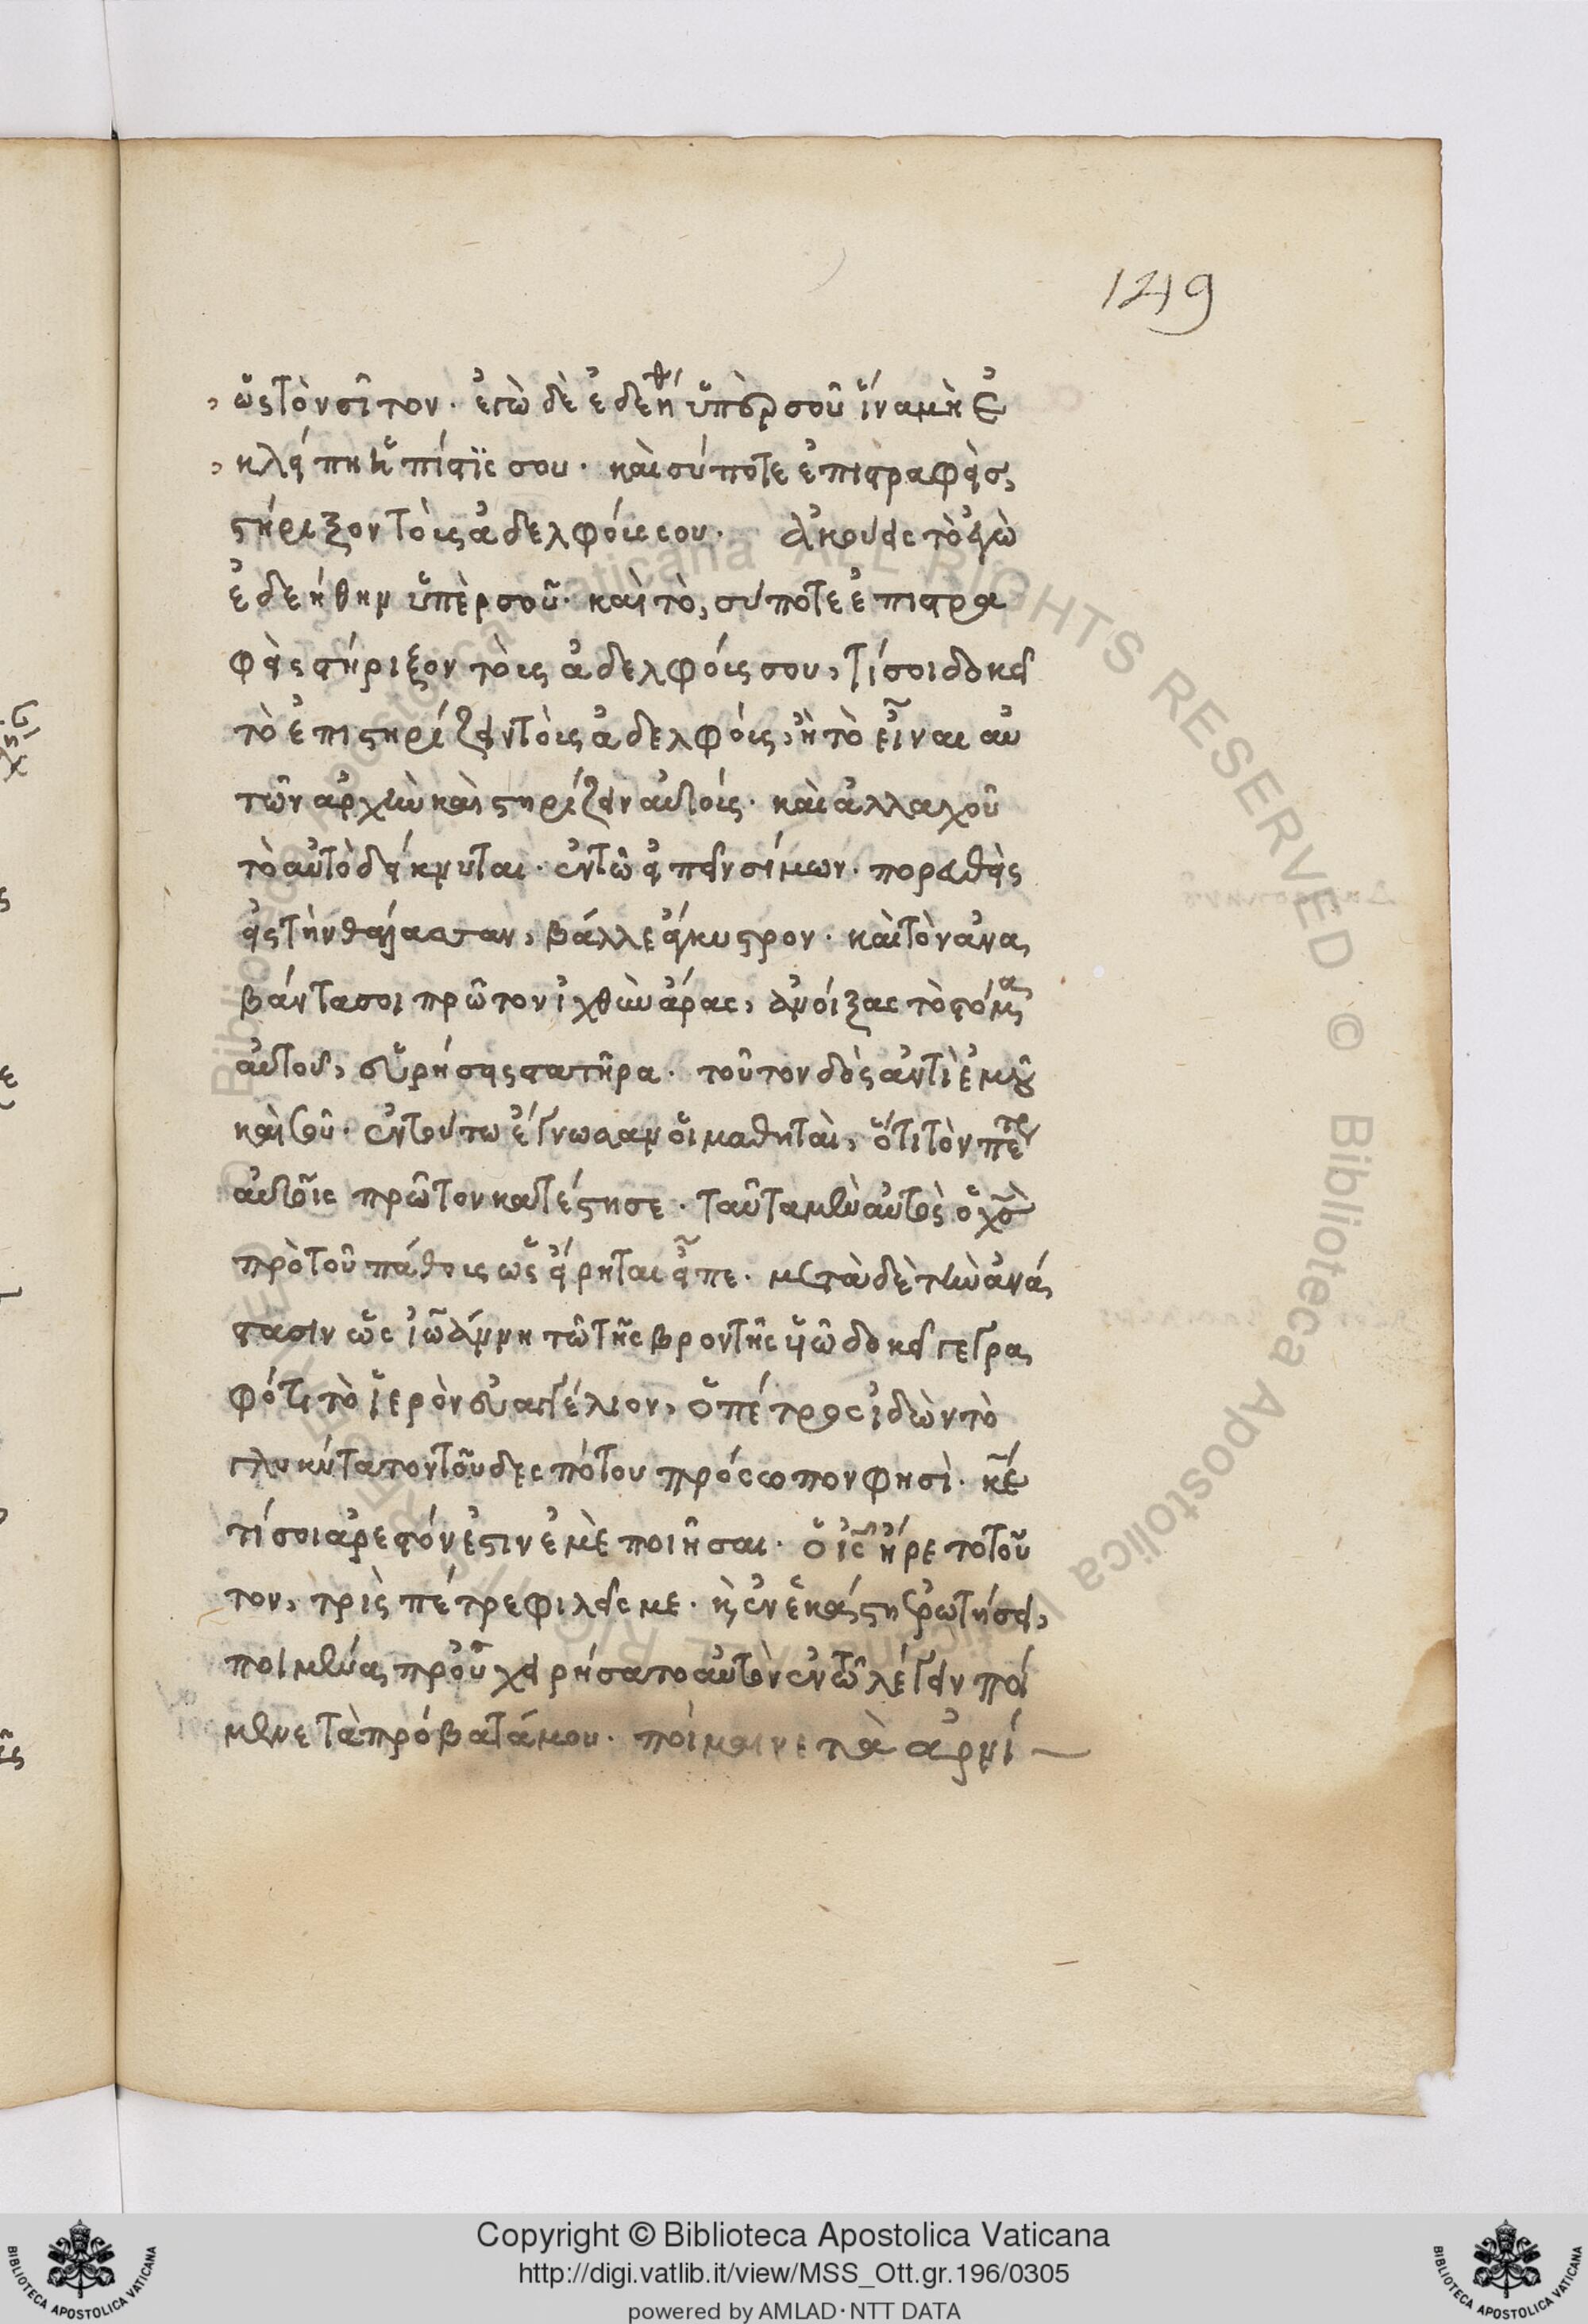 149
ὡς τὸν σῖτον· ἐγὼ δὲ ἐδεήθη ὑπὲρ σοῦ ἵνα μὴ ἐ
κλείπη ἡ πίστις σου· καὶ σύ ποτε ἐπιστραφεὶς,
στήριξον τοὺς ἀδελφούς σου· ἀκούεις τὸ ἐγὼ
ἐδεήθην ὑπὲρ σοῦ· καὶ τὸ, σύ ποτε ἐπιστρα
φεὶς στήριξον τοὺς ἀδελφούς σου, τί σοι δοκεῖ
τὸ ἐπιστηρίζειν τοὺς ἀδελφούς, ἢ τὸ εἶναι αὐ
τῶν ἀρχὴν καὶ στηρίζειν αὐτούς· καὶ ἀλλαχοῦ
τὸ αὐτὸ δείκνυται· ἐν τῶ εἰπεῖν σίμων· πορευθεὶς
εἰς τὴν θάλασσαν, βάλλε ἄγκιστρον· καὶ τὸν ἀνα
βάντα σοι πρῶτον ἰχθὺν ἄρας, ἀνοίξας τὸ στόμα
αὐτοῦ, εὑρήσεις στατῆρα· τοῦτον δὸς ἀντὶ ἐμοῦ
καὶ σοῦ· ἐν τούτω ἔγνωσαν οἱ μαθηταὶ, ὅτι τὸν πέτρ
αὐτοῖς πρῶτον κατέστησε· ταῦτα μὲν αὐτὸς ὁ χσ
πρὸ τοῦ πάθους ὡς εἴρηται εἶπε· μετὰ δὲ τὴν ἀνά
στασιν ὡς ἰωάννη τῶ τῆς βροντῆς υἱῶ δοκεῖ γεγρα
φότι τὸ ἱερὸν εὐαγγέλιον, ὁ πέτρος ἰδὼν τὸ
γλυκύτατον τοῦ δεσπότου πρόσωπον φησὶ· κε
τί σοι ἀρεστόν ἐστιν ἐμὲ ποιῆσαι· ὁ ις ἤρετο τοῦ
τον, τρὶς πέτρε φιλεῖς με· κ ἐν ἑκάστη ἐρωτήσει,
ποιμένα προὐχειρήσατο αὐτὸν ἐν τῶ λέγειν ποί
μαινε τὰ πρόβατά μου· ποίμαινε τὰ ἀρνί
Copyright © Biblioteca Apostolica Vaticana
http://digi.vatlib.it/view/MSS_Ott.gr.196/0305
powered by AMLAD·NTT DATA